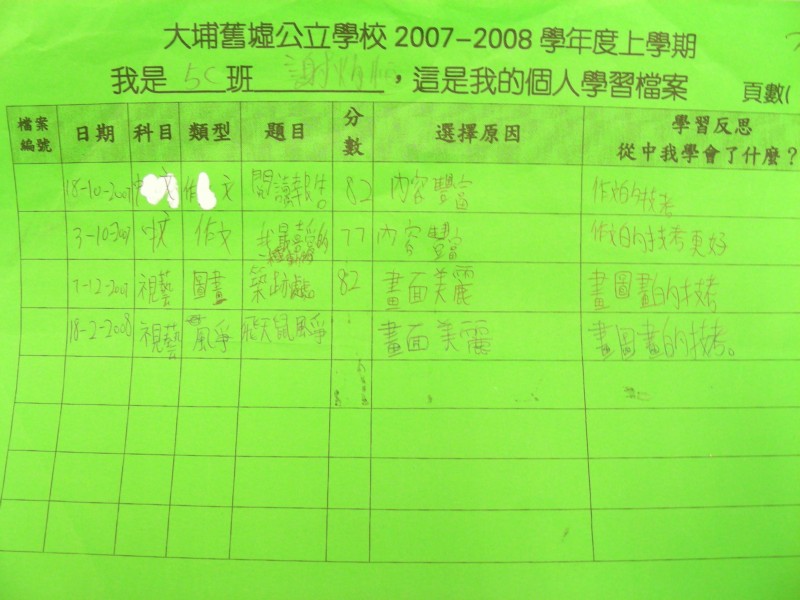 大埔舊墟公立學校 2007-2008 學年度上學期
我是 5C 班 謝 ，這是我的個人學習檔案 頁數(
檔案編號 日期 科目 類型 題目 分數 選擇原因 學習反思 從中我學會了什麼？
18-10-2007 文 作 文 閱讀報告 82 內容豐富 作文的技考
3-10-2007 中文 作文 我最喜愛的 77 內容豐富 作文的技考更好
7-12-2007 視藝 圖畫 築跡處處 82 畫面美麗 畫圖畫的技考
18-2-2008 視藝 風爭 飛天鼠風爭 畫面美麗 畫圖畫的技考。